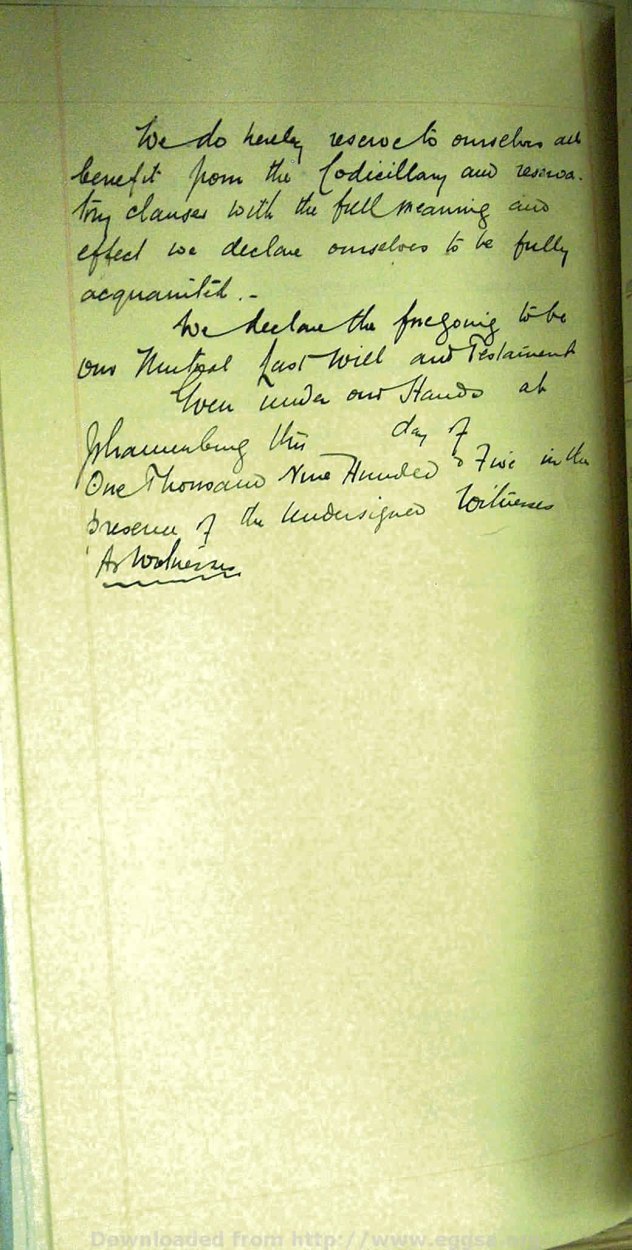 We do hereby reserve to ourselves all
benefit from the Codicillary and reserva-
tory clauses with the full meaning and
effect we declare ourselves to be fully
acquainted.-
We declare the foregoing to be
our Mutual Last Will and Testament
Given under our Hands at
Johannesburg this day of
One Thousand Nine Hundred & Five in the
presence of the Undersigned Witnesses
As Witnesses
Downloaded from http://www.eggsa.org